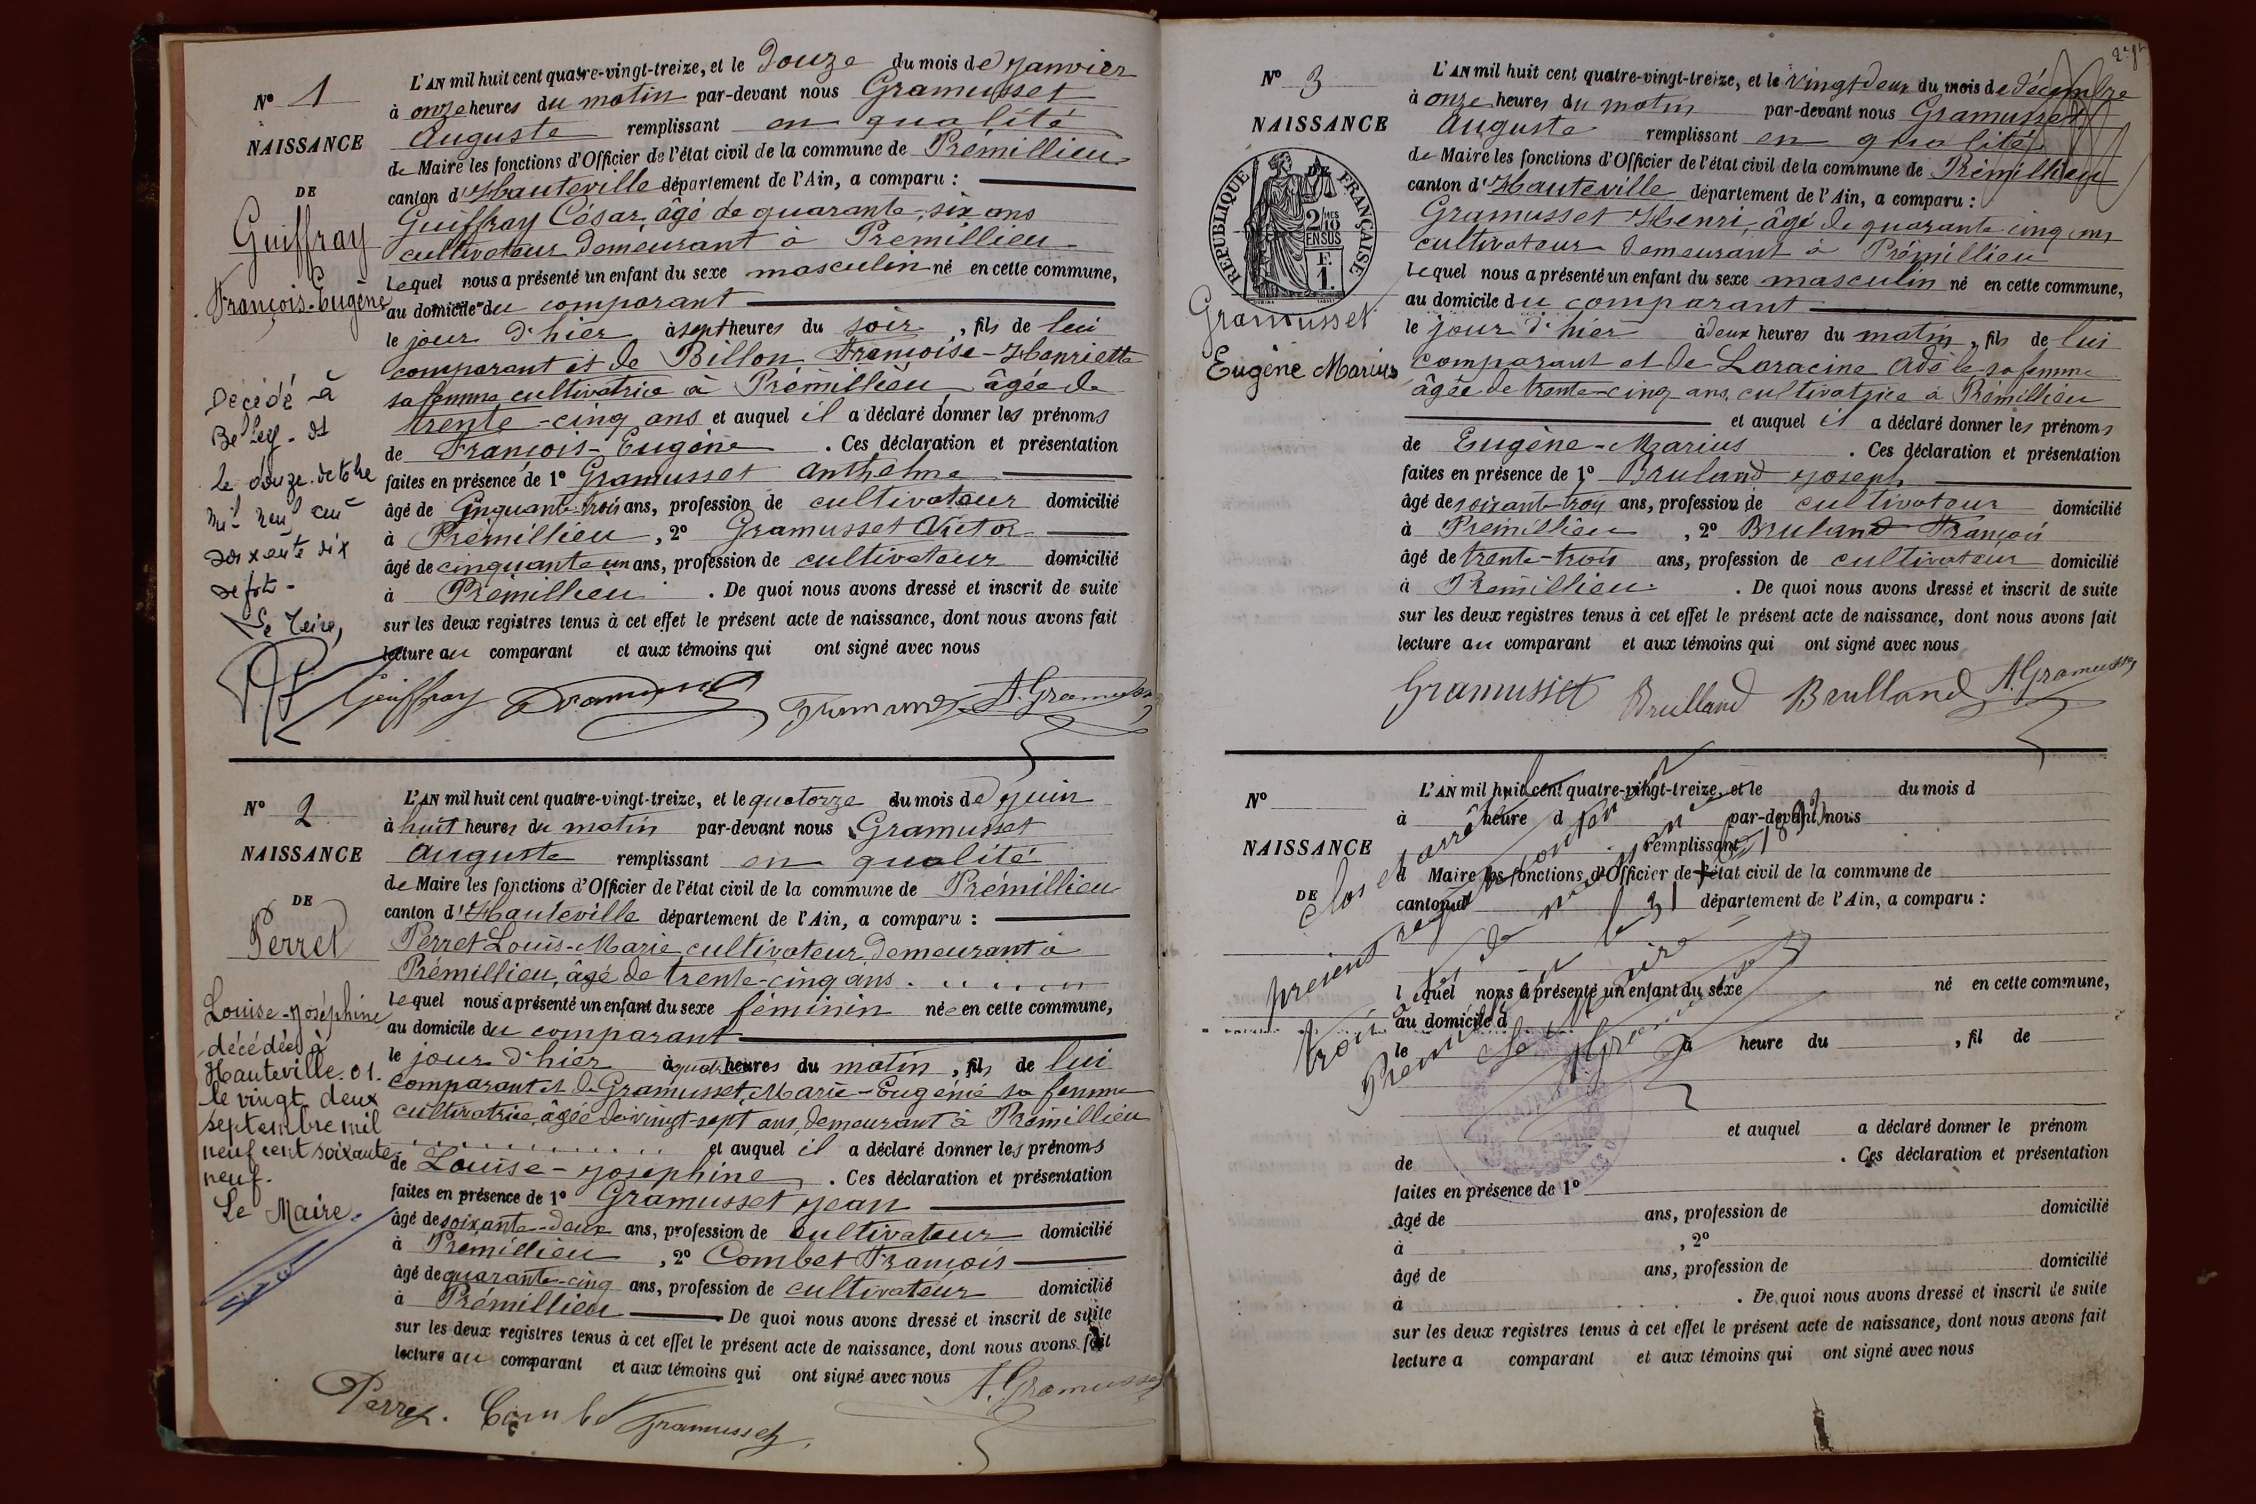 N° 1
NAISSANCE
DE
Guiffray
François-Eugène
Décédé à
Belley - 
le douze octobre
mil neuf cent
soixante dix
sept -
Le Maire,
L'AN mil huit cent quatre-vingt-treize, et le douze du mois de janvier
à onze heures du matin par-devant nous Gramusset
Auguste remplissant en qualité
de Maire les fonctions d'Officier de l'état civil de la commune de Prémillieu
canton d'Hauteville département de l'Ain, a comparu :
Guiffray César, âgé de quarante-six ans
cultivateur demeurant à Prémillieu
lequel nous a présenté un enfant du sexe masculin né en cette commune,
au domicile du comparant
le jour d'hier à sept heures du soir, fils de lui
comparant et de Billon Françoise-Henriette
sa femme cultivatrice à Prémillieu, âgée de
trente-cinq ans et auquel il a déclaré donner les prénoms
de François-Eugène. Ces déclaration et présentation
faites en présence de 1° Gramusset Anthelme
âgé de cinquante-trois ans, profession de cultivateur domicilié
à Prémillieu, 2° Gramusset Victor
âgé de cinquante un ans, profession de cultivateur domicilié
à Prémillieu. De quoi nous avons dressé et inscrit de suite
sur les deux registres tenus à cet effet le présent acte de naissance, dont nous avons fait
lecture au comparant et aux témoins qui ont signé avec nous
Guiffray Gramusset A. Gramusset
N° 2
NAISSANCE
DE
Perret
Louise-Joséphine
décédée à
Hauteville. 01.
le vingt deux
septembre mil
neuf cent soixante
neuf.
Le Maire.
L'AN mil huit cent quatre-vingt-treize, et le quatorze du mois de juin
à huit heures du matin par-devant nous Gramusset
Auguste remplissant en qualité
de Maire les fonctions d'Officier de l'état civil de la commune de Prémillieu
canton d'Hauteville département de l'Ain, a comparu :
Perret Louis-Marie, cultivateur, demeurant à
Prémillieu, âgé de trente-cinq ans.
lequel nous a présenté un enfant du sexe féminin née en cette commune,
au domicile du comparant
le jour d'hier à quatre heures du matin, fils de lui
comparant et de Gramusset, Marie-Eugénie sa femme
cultivatrice, âgée de vingt-sept ans, demeurant à Prémillieu
et auquel il a déclaré donner les prénoms
de Louise-Joséphine. Ces déclaration et présentation
faites en présence de 1° Gramusset Jean
âgé de soixante-deux ans, profession de cultivateur domicilié
à Prémillieu, 2° Combet François
âgé de quarante-cinq ans, profession de cultivateur domicilié
à Prémillieu De quoi nous avons dressé et inscrit de suite
sur les deux registres tenus à cet effet le présent acte de naissance, dont nous avons fait
lecture au comparant et aux témoins qui ont signé avec nous
Perret. Combet Gramusset A. Gramusset
N° 3
NAISSANCE
DE
RÉPUBLIQUE FRANÇAISE
2/10MES
EN SUS
F.
1.
Gramusset
Eugène Marius
L'AN mil huit cent quatre-vingt-treize, et le vingt deux du mois de décembre
à onze heures du matin par-devant nous Gramusset
Auguste remplissant en qualité
de Maire les fonctions d'Officier de l'état civil de la commune de Prémillieu
canton d'Hauteville département de l'Ain, a comparu :
Gramusset Henri, âgé de quarante cinq ans
cultivateur demeurant à Prémillieu
lequel nous a présenté un enfant du sexe masculin né en cette commune,
au domicile du comparant
le jour d'hier à deux heures du matin, fils de lui
comparant et de Laracine Adèle sa femme
âgée de trente-cinq ans, cultivatrice à Prémillieu
et auquel il a déclaré donner les prénoms
de Eugène-Marius. Ces déclaration et présentation
faites en présence de 1° Bruland Joseph
âgé de soixante-trois ans, profession de cultivateur domicilié
à Prémillieu, 2° Bruland François
âgé de trente-trois ans, profession de cultivateur domicilié
à Prémillieu. De quoi nous avons dressé et inscrit de suite
sur les deux registres tenus à cet effet le présent acte de naissance, dont nous avons fait
lecture au comparant et aux témoins qui ont signé avec nous
Gramusset Brulland Brulland A. Gramusset
N°
NAISSANCE
DE
L'AN mil huit cent quatre-vingt-treize, et le du mois d
à heure d par-devant nous
remplissant
d Maire les fonctions d'Officier de l'état civil de la commune de
canton d département de l'Ain, a comparu :
l quel nous a présenté un enfant du sexe né en cette commune,
au domicile d
le à heure du , fil de
et auquel a déclaré donner le prénom
de . Ces déclaration et présentation
faites en présence de 1°
âgé de ans, profession de domicilié
à , 2°
âgé de ans, profession de domicilié
à . De quoi nous avons dressé et inscrit de suite
sur les deux registres tenus à cet effet le présent acte de naissance, dont nous avons fait
lecture a comparant et aux témoins qui ont signé avec nous
Clos et arrêté le
présent registre contenant
trois actes de naissance
Prémillieu le 31
Le Maire
A. Gramusset